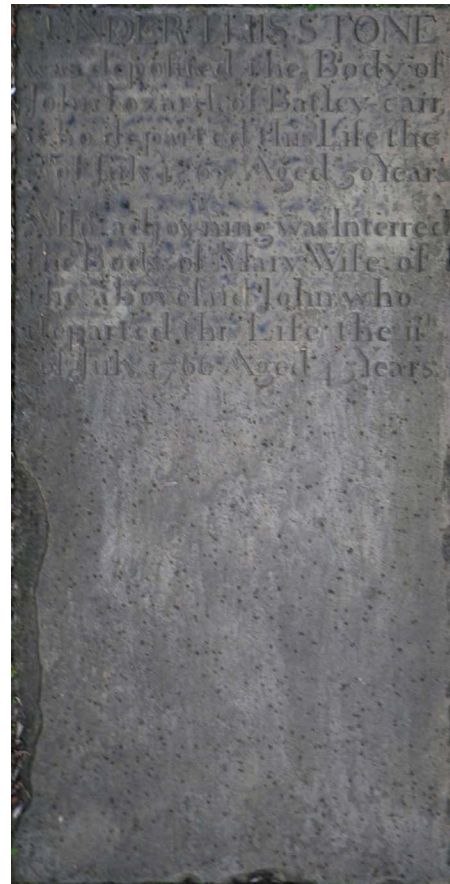 UNDER THIS STONE
was deposited the Body of
John Fozard of Batley-carr
who departed this Life the
of July Aged 50 Years
Also adjoyning was Interred
the Body of Mary Wife of
the abovesaid John who
departed this Life the 11th
of July 1766 Aged 45 Years